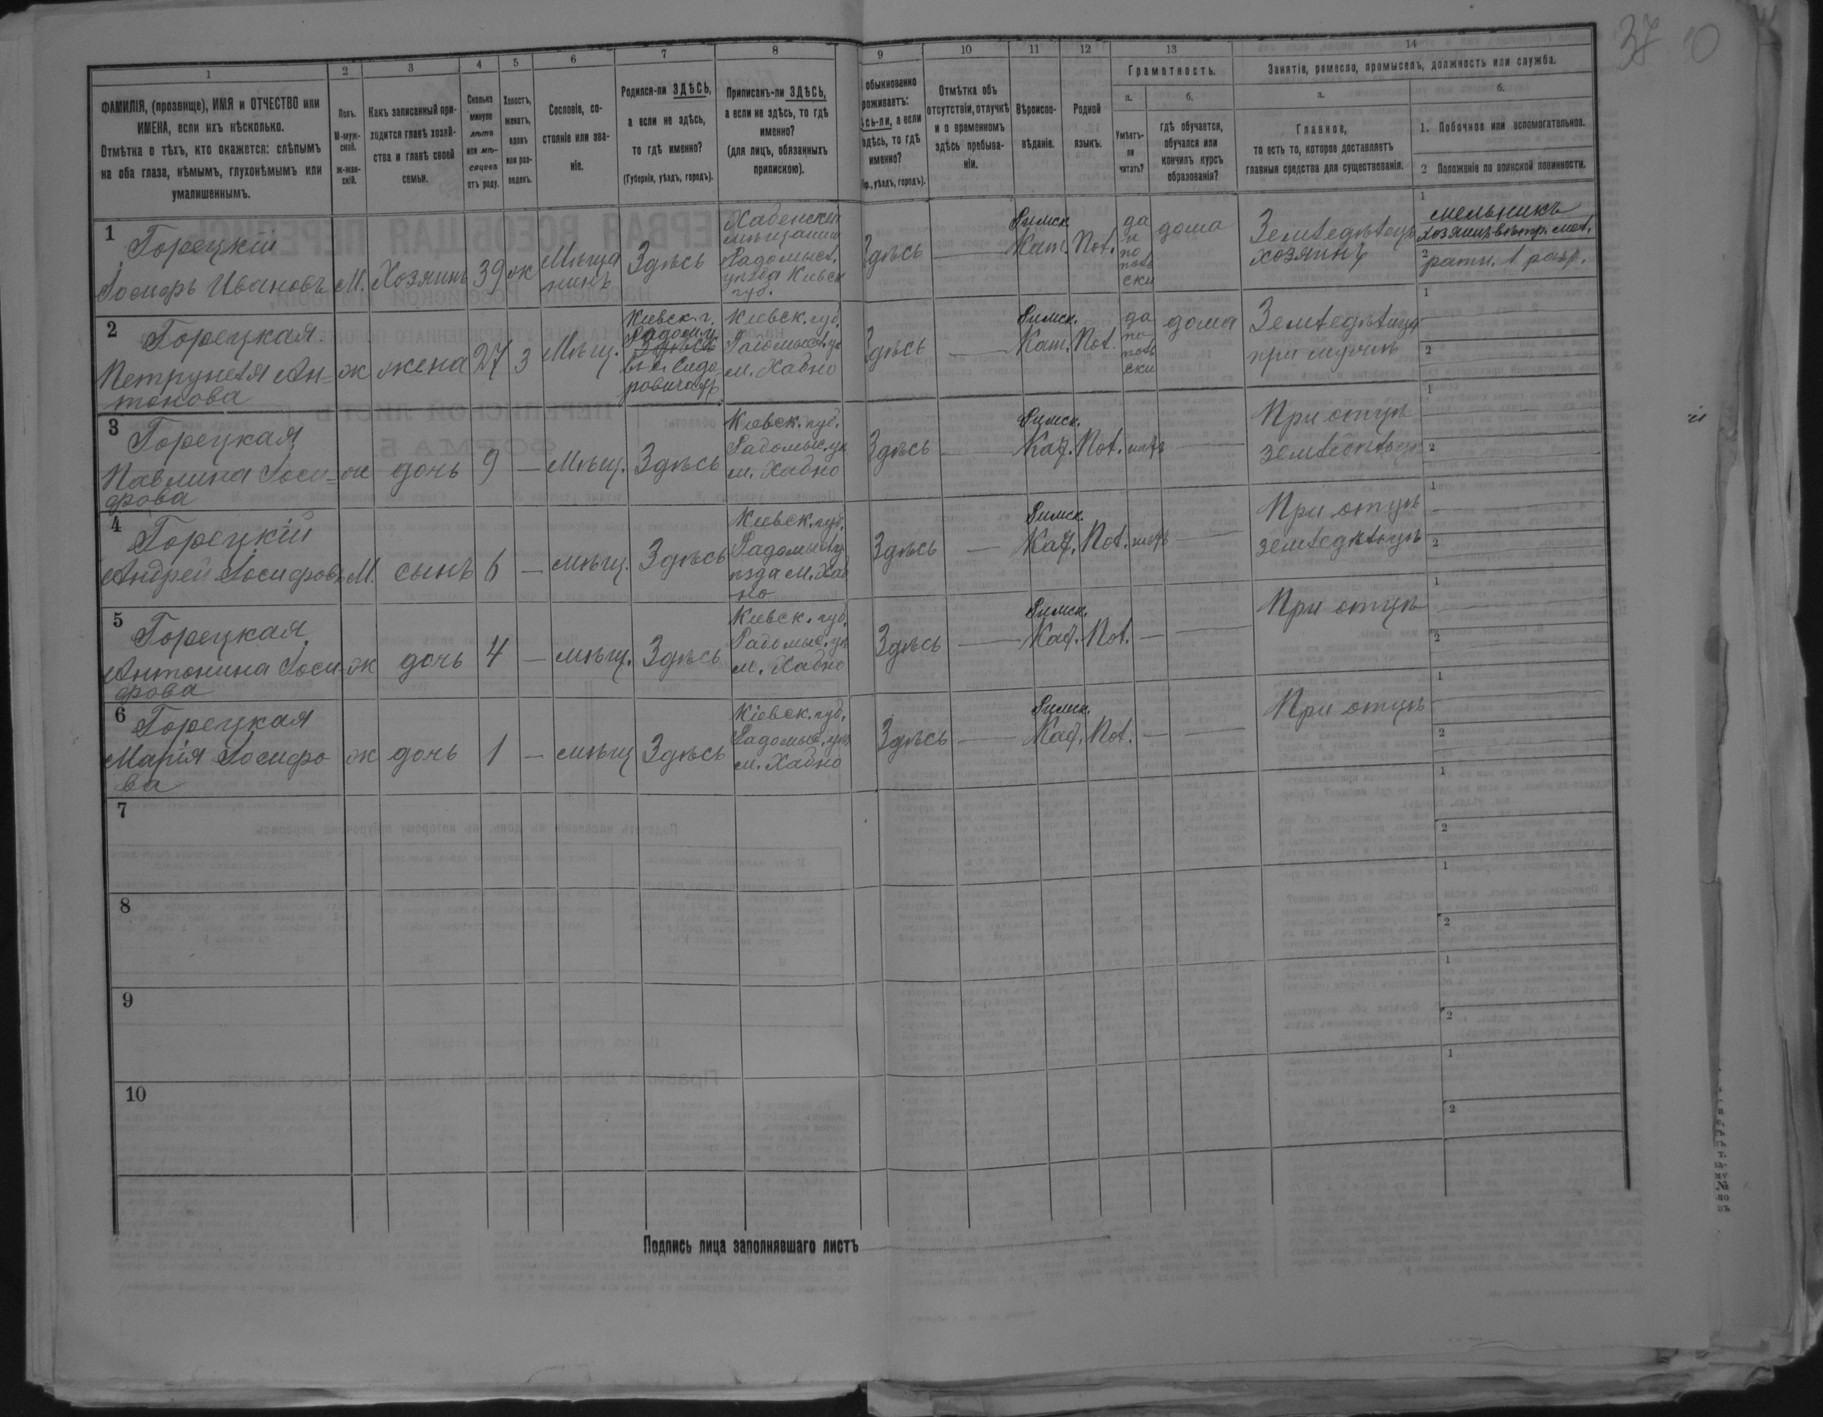 37
1
2
3
4
5
6
7
8
9
10
11
12
13
14
ФАМИЛІЯ, (прозвище), ИМЯ и ОТЧЕСТВО или
ИМЕНА, если ихъ нѣсколько.
Отмѣтка о тѣхъ, кто окажется: слѣпымъ
на оба глаза, нѣмымъ, глухонѣмымъ или
умалишеннымъ.
Полъ.
М-муж-
ской.
Ж-жен-
скій.
Какъ записанный при-
ходится главѣ хозяй-
ства и главѣ своей
семьи.
Сколько
минуло
лѣтъ
или мѣ-
сяцевъ
отъ роду.
Холостъ,
женатъ,
вдовъ
или раз-
веденъ.
Сословіе, со-
стояніе или зва-
ніе.
Родился-ли ЗДѢСЬ,
а если не здѣсь,
то гдѣ именно?
(Губернія, уѣздъ, городъ).
Приписанъ-ли ЗДѢСЬ,
а если не здѣсь, то гдѣ
именно?
(для лицъ, обязанныхъ
припискою).
обыкновенно
роживаетъ:
сь-ли, а если
здѣсь, то гдѣ
именно?
уѣздъ, городъ).
Отмѣтка объ
отсутствіи, отлучкѣ
и о временномъ
здѣсь пребыва-
ніи.
Вѣроиспо-
вѣданіе.
Родной
языкъ.
Грамотность.
а.
б.
Умѣетъ-
ли
читать?
гдѣ обучается,
обучался или
кончилъ курсъ
образованія?
Занятіе, ремесло, промыселъ, должность или служба.
а.
б.
Главное,
то есть то, которое доставляетъ
главныя средства для существованія.
1. Побочное или вспомогательное.
2 Положеніе по воинской повинности.
1
Горецкій
Іосифъ Ивановъ
М.
Хозяинъ
39
ж
Мѣща
нинъ
Здѣсь
Хабенскій
мѣщанинъ
Радомысл.
уѣзда Кіевск
губ.
Здѣсь
Римск.
Кат.
Пол.
да
по
поль
ски
дома
Земледѣлецъ
хозяинъ
1
мельникъ
хозяинъ вѣтр. мел.
2
ратн. 1 разр.
2
Горецкая
Петрунеля Ан-
тонова
ж
жена
27
з
Мѣщ.
Кіевск. г.
Радом. у.
Кіевск. губ.
Радомысл. у
м. Хабно
Здѣсь
Римск.
Кат.
Пол.
да
по
поль
ски
дома
Земледѣлица
при мужѣ
1
2
3
Горецкая
Павлина Іоси-
фова
ж
дочь
9
Мѣщ.
Здѣсь
Кіевск. губ.
Радомыс. у
м. Хабно
Здѣсь
Римск.
Каф.
Пол.
нѣтъ
При отцѣ
земледѣльцѣ
1
2
4
Горецкій
Андрей Іосифовъ
М.
сынъ
6
мѣщ.
Здѣсь
Кіевск. губ.
Радомысл. у
ѣзда м. Хаб
но
Здѣсь
Римск.
Каф.
Пол.
нѣтъ
При отцѣ
земледѣльцѣ
1
2
5
Горецкая
Антонина Іоси-
фова
ж
дочь
4
мѣщ.
Здѣсь
Кіевск. губ.
Радомыс. у
м. Хабно
Здѣсь
Римск.
Каф.
Пол.
При отцѣ
1
2
6
Горецкая
Марія Іосифо-
ва
ж
дочь
1
мѣщ
Здѣсь
Кіевск. губ.
Радомыс. у
м. Хабно
Здѣсь
Римск.
Каф.
Пол.
При отцѣ
1
2
7
1
2
8
1
2
9
1
2
10
1
2
Подпись лица заполнявшаго листъ